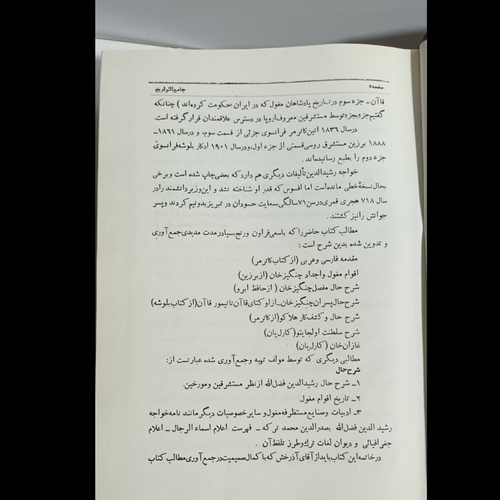 صفحه ۵ جامع التواریخ
قاآن ـ جزء سوم در تاریخ پادشاهان مغول که در ایران حکومت کرده‌اند ) چنانکه
گفتیم جزء بجزء توسط مستشرقین معروف اروپا در دسترس علاقمندان قرار گرفته است.
در سال ۱۸۳۶ اتین کاترمر فرانسوی جزئی از قسمت سوم، و در سال ۱۸۶۱ ـ
۱۸۸۸ برزین مستشرق روسی قسمتی از جزء اول، و در سال ۱۹۰۱ ادگار بلوشه فرانسوی
جزء دوم را بطبع رسانیده‌اند.
خواجه رشیدالدین تألیفات دیگری هم دارد که بعضی چاپ شده است و برخی
بحال نسخهٔ خطی مانده است اما افسوس که قدر او شناخته نشد و این وزیر دانشمند را در
سال ۷۱۸ هجری قمری در سن ۷۱ سالگی بسعایت حسودان در تبریز بدونیم کردند و پسر
جوانش رانیز کشتند.
مطالب کتاب حاضر را که باسعی فراوان ورنج بسیار در مدت مدیدی جمع آوری
و تدوین شده بدین شرح است :
مقدمه فارسی و عربی (از کتاب کاترمر)
اقوام مغول و اجداد چنگیزخان (از برزین)
شرح حال مفصل چنگیزخان (از حافظ ابرو)
شرح حال پسران چنگیزخان ـ از اوکتای قاآن تا تیمور قاآن (از کتاب بلوشه)
شرح حال و کشف کار هلاکو (از کاترمر)
شرح سلطنت اولجایتو (کارل یان)
غازان خان (کارل یان)
مطالبی دیگری که توسط مولف تهیه و جمع آوری شده عبارتست از:
شرح حال
۱ـ شرح حال رشیدالدین فضل‌الله از نظر مستشرقین و مورخین.
۲ـ تاریخ اقوام مغول
۳ـ ادبیات و صنایع مستظرفه مغول و سایر خصوصیات دیگر مانند نامه خواجه
رشید الدین فضل‌الله بصدرالدین محمد ترکه ـ فهرست اعلام اسماء الرجال ـ اعلام
جغرافیائی و دیوان لغات ترک و طرز تلفظ آن.
در خاتمه این کتاب باید از آقای آذرخش که با کمال صمیمیت در جمع آوری مطالب کتاب